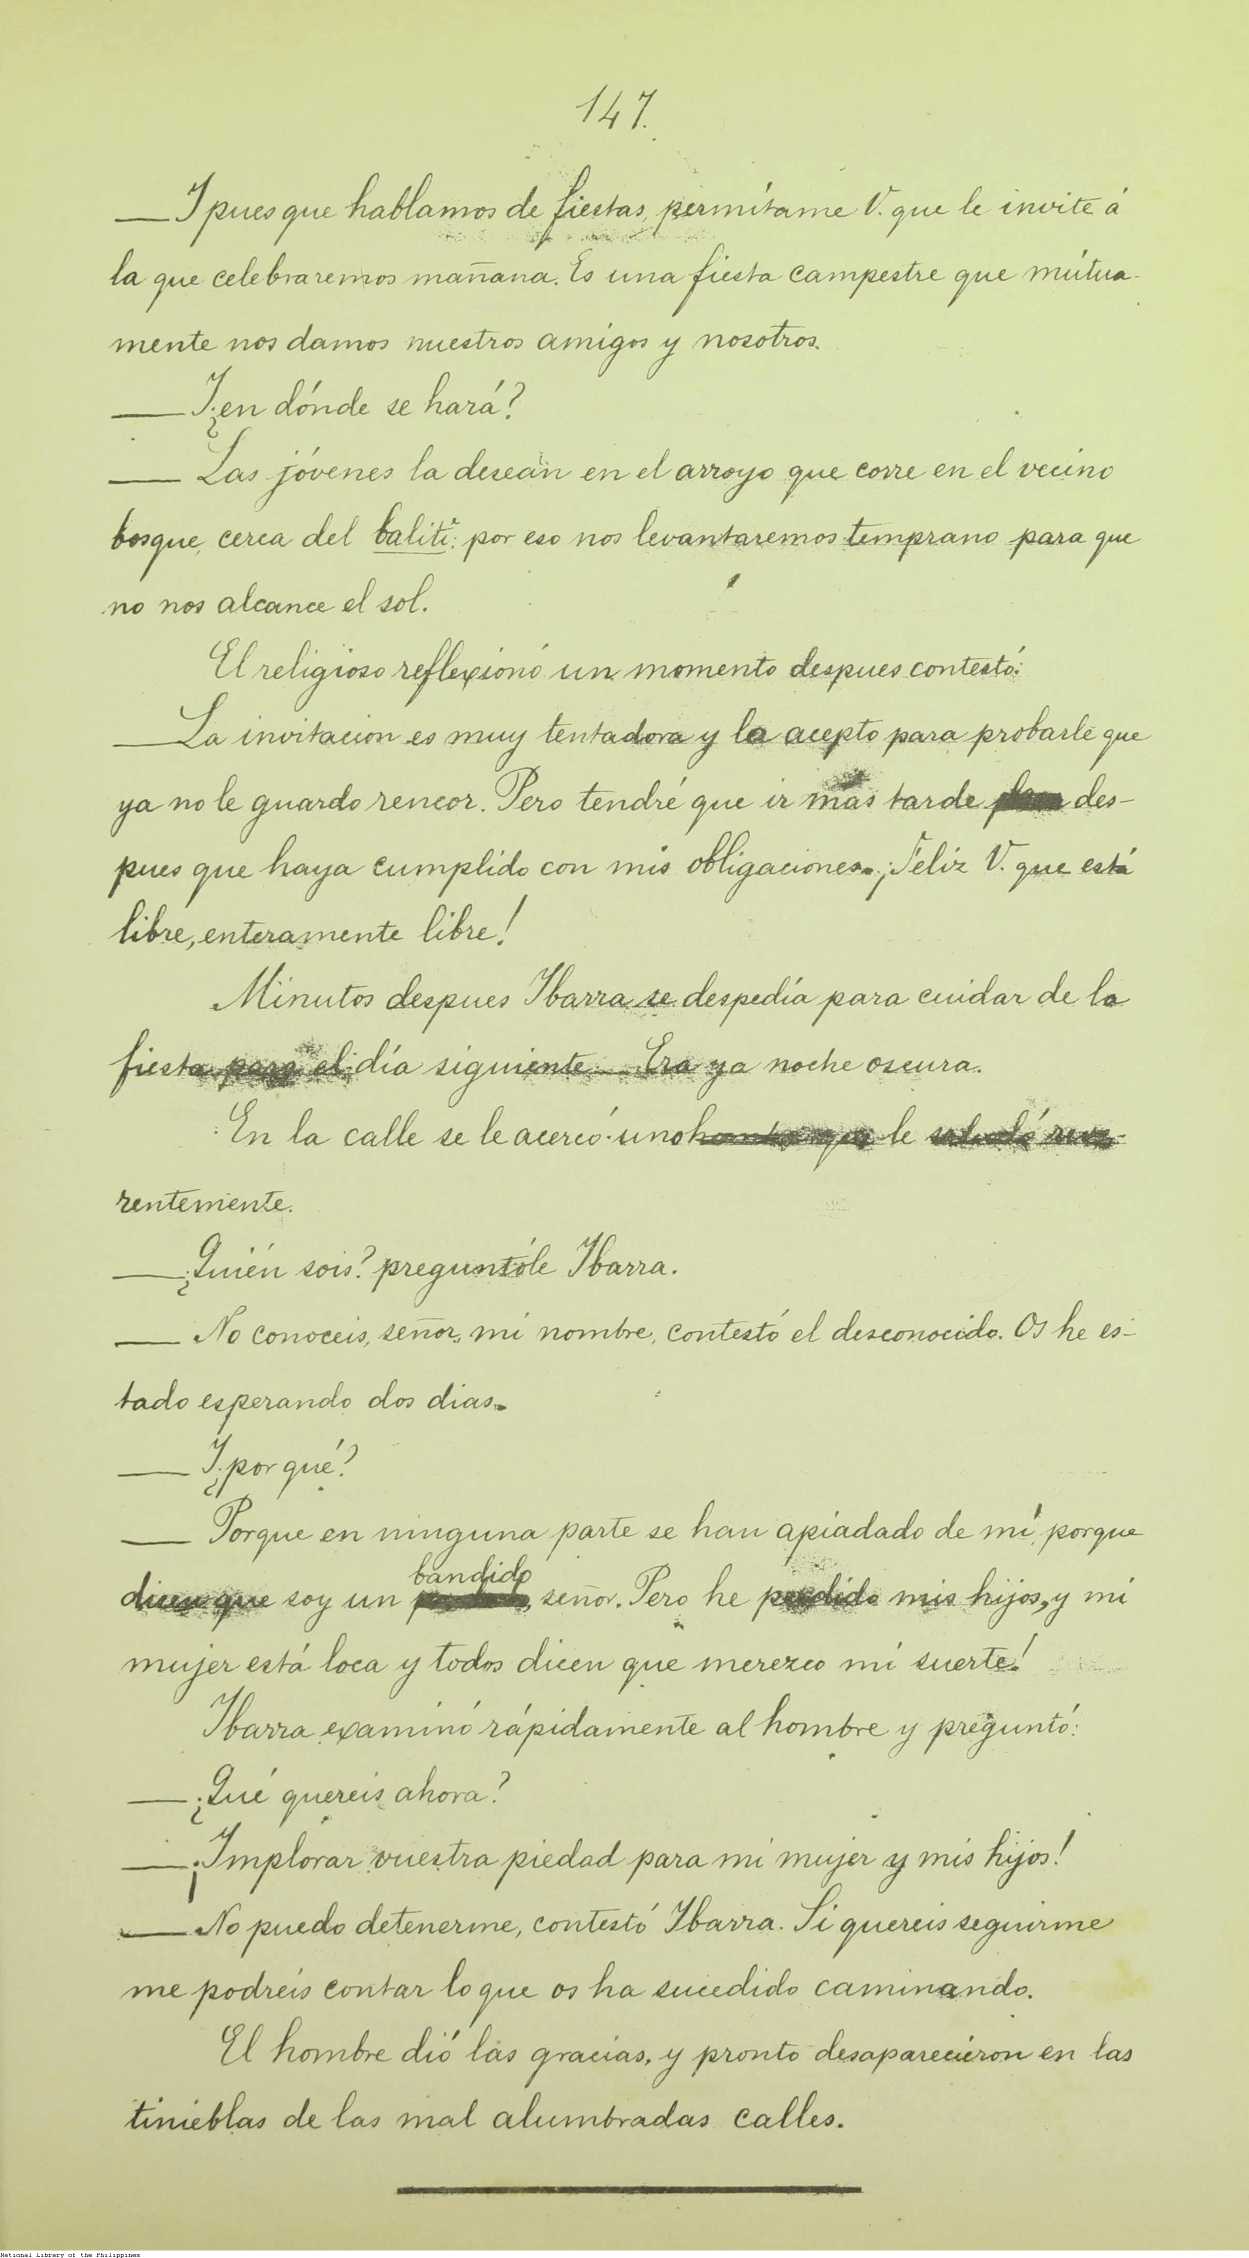 147.
— Y pues que hablamos de fiestas, permítame V. que le invite á
la que celebraremos mañana. Es una fiesta campestre que mútua-
mente nos damos nuestros amigos y nosotros.
— Y ¿en dónde se hará?
— Las jóvenes la desean en el arroyo que corre en el vecino
bosque, cerca del balitî: por eso nos levantaremos temprano para que
no nos alcance el sol.
El religioso reflexionó un momento despues contestó:
— La invitacion es muy tentadora y la acepto para probarle que
ya no le guardo rencor. Pero tendré que ir más tarde des-
pues que haya cumplido con mis obligaciones. ¡Feliz V. que está
libre, enteramente libre!
Minutos despues Ibarra se despedía para cuidar de la
fiesta para el día siguiente. — Era ya noche oscura.
En la calle se le acercó uno le saludó reve-
rentemente.
— ¿Quién sois? preguntóle Ibarra.
— No conoceis, señor, mi nombre, contestó el desconocido. Os he es-
tado esperando dos dias.
— Y ¿por qué?
— Porque en ninguna parte se han apiadado de mí, porque
dicen que soy un bandido, señor. Pero he perdido mis hijos, y mi
mujer está loca y todos dicen que merezco mi suerte!
Ibarra examinó rápidamente al hombre y preguntó:
— ¿Qué quereis ahora?
— ¡Implorar vuestra piedad para mi mujer y mis hijos!
— No puedo detenerme, contestó Ibarra. Si quereis seguirme
me podreis contar lo que os ha sucedido caminando.
El hombre dió las gracias, y pronto desaparecieron en las
tinieblas de las mal alumbradas calles.
National Library of the Philippines